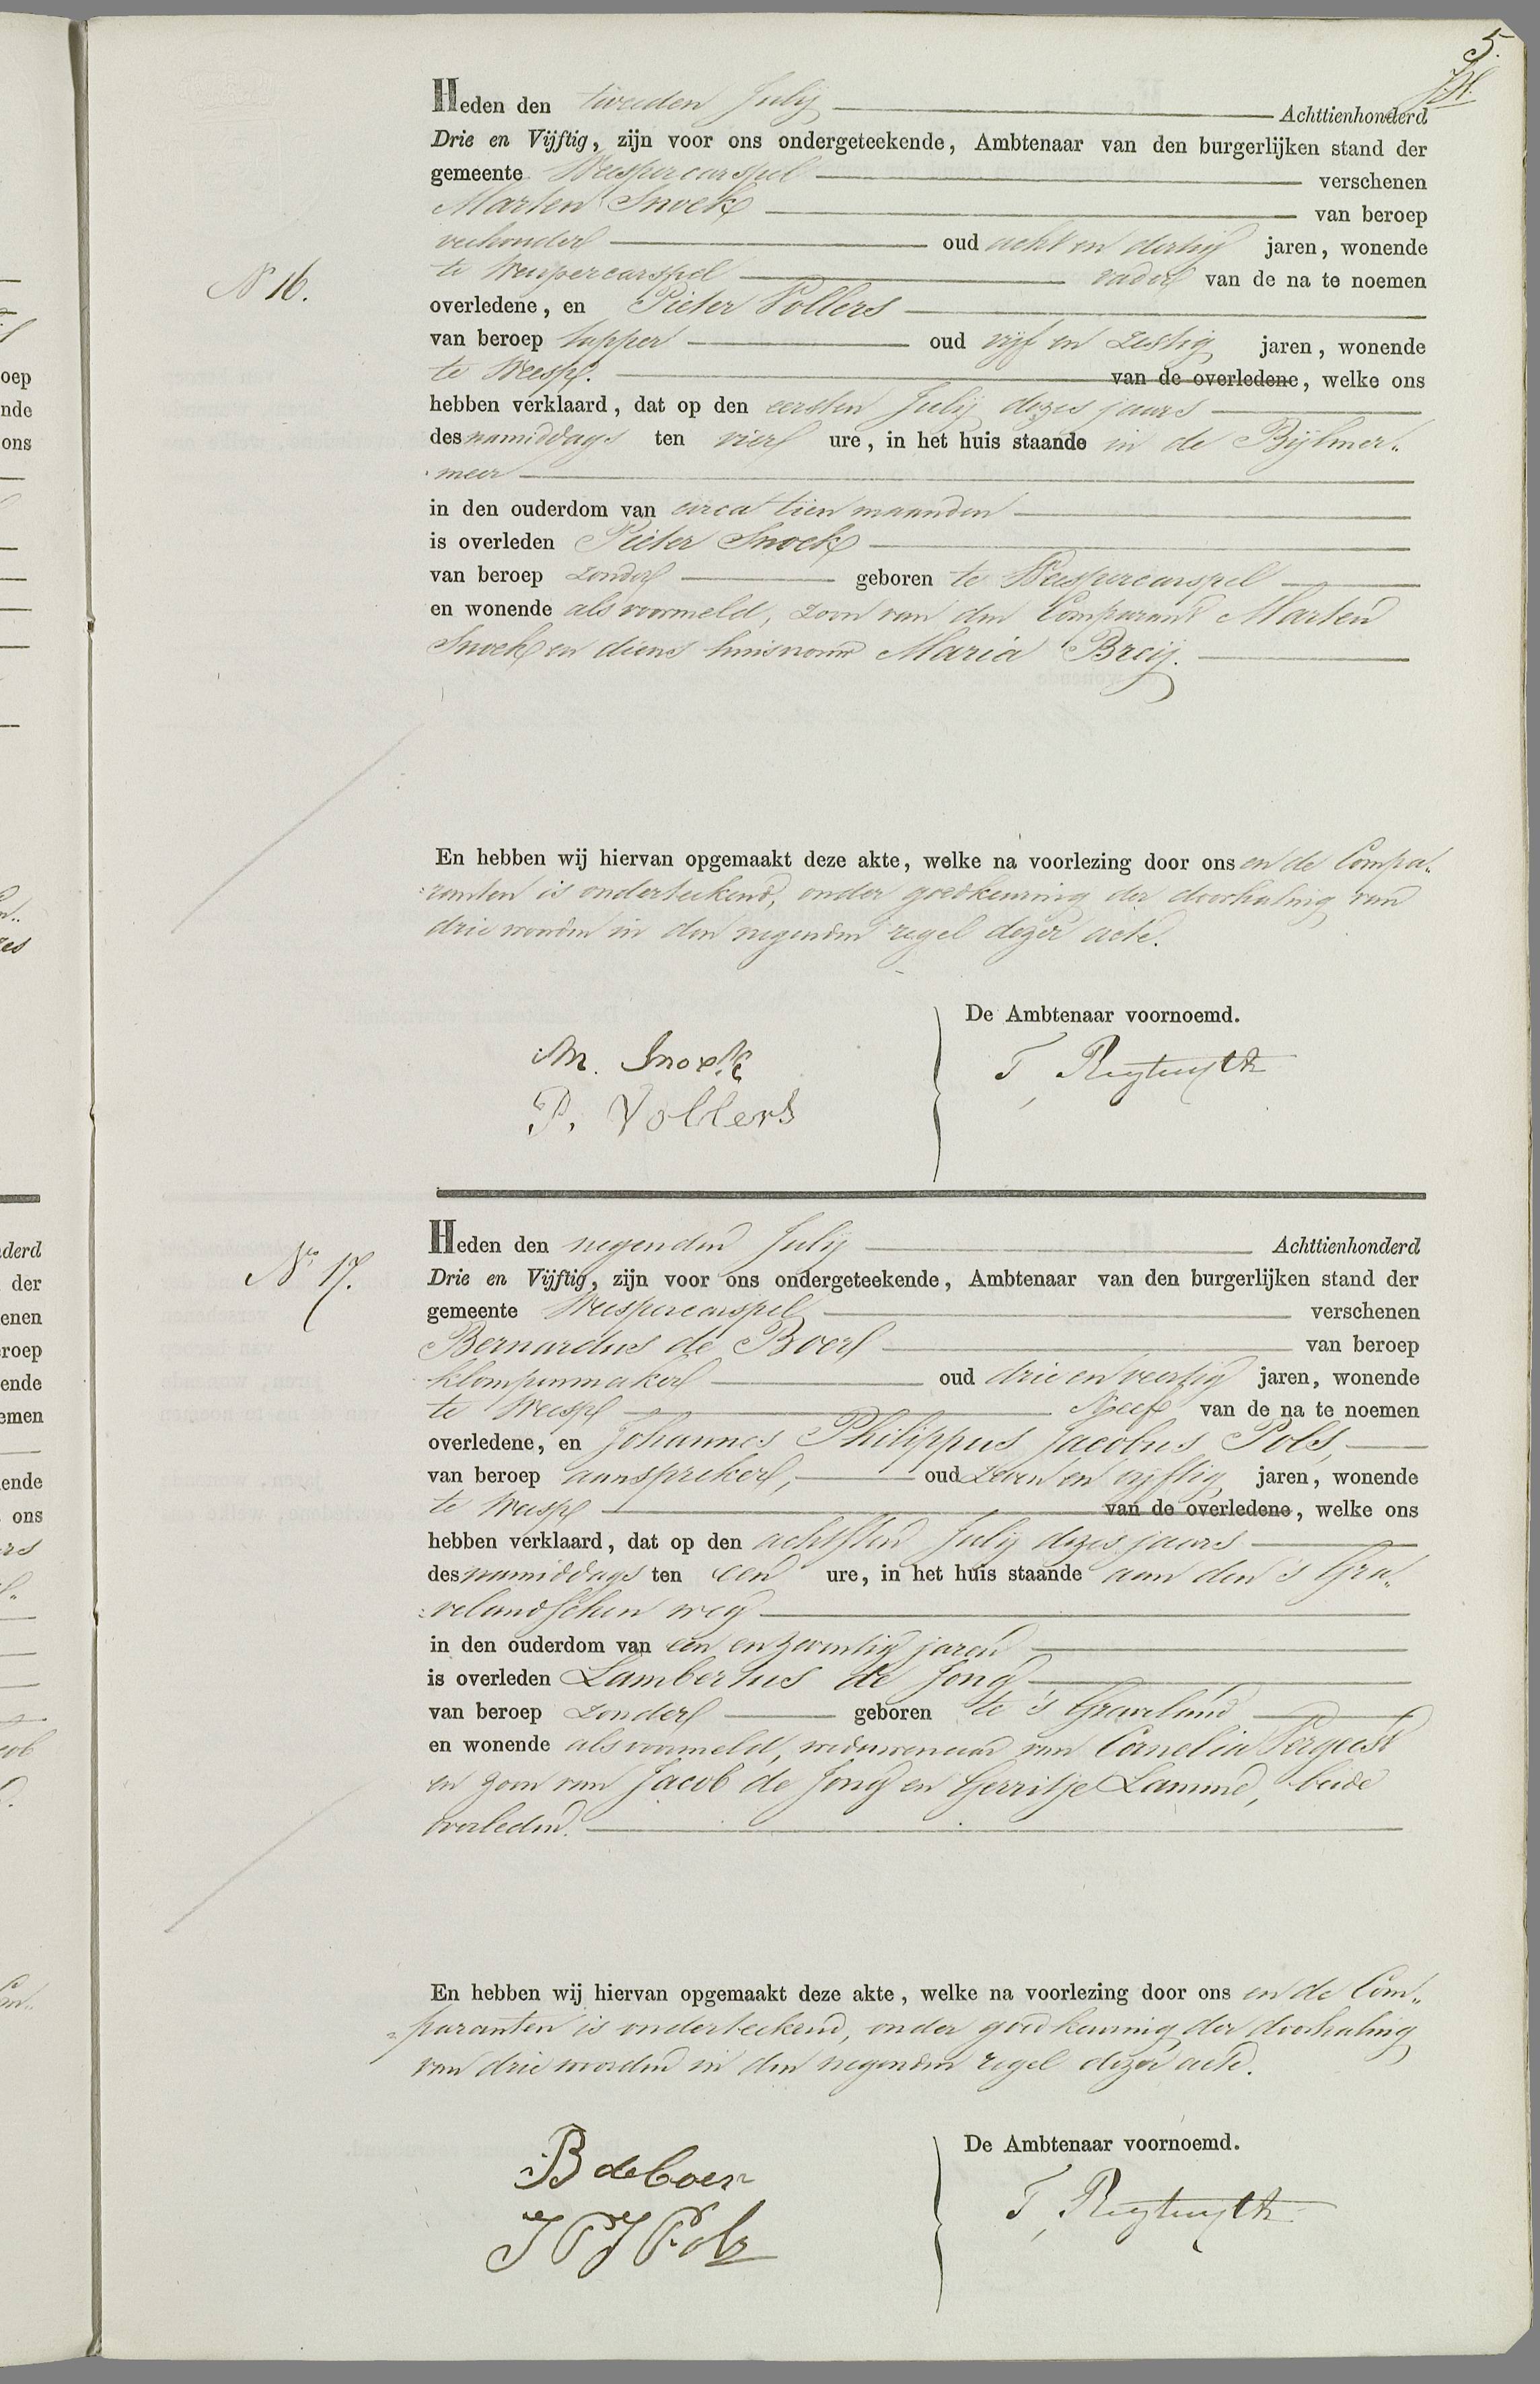 5.
Heden den tweeden Julij Achttienhonderd
Drie en Vijftig, zijn voor ons ondergeteekende, Ambtenaar van den burgerlijken stand der
gemeente Weespercarspel verschenen
Marten Snoek van beroep
veehouder oud acht en dertig jaren, wonende
N 16.
te Weespercarspel vader van de na te noemen
overledene, en Pieter Vollers
van beroep tapper oud vijf en zestig jaren, wonende
te Weesp. van de overledene, welke ons
hebben verklaard, dat op den eersten Julij dezes jaars
des namiddags ten vier ure, in het huis staande in de Bijlmer„
meer
in den ouderdom van circa tien maanden
is overleden Pieter Snoek
van beroep zonder geboren te Weespercarspel
en wonende als voormeld, zoon van den Comparant Marten
Snoek en diens huisvrouw Maria Breij.
En hebben wij hiervan opgemaakt deze akte, welke na voorlezing door ons en de Compa„
ranten is onderteekend, onder goedkeuring der doorhaling van
drie woorden in den negenden regel dezer acte.
De Ambtenaar voornoemd.
M. Snoek
P. Vollers
N° 17.
Heden den negenden Julij Achttienhonderd
Drie en Vijftig, zijn voor ons ondergeteekende, Ambtenaar van den burgerlijken stand der
gemeente Weespercarspel verschenen
Bernardus de Boer van beroep
klompenmaker oud drie en veertig jaren, wonende
te Weesp Neef van de na te noemen
overledene, en Johannes Philippus Jacobus Pols,
van beroep aanspreker, oud zeven en vijftig jaren, wonende
te Weesp van de overledene, welke ons
hebben verklaard, dat op den achtsten Julij dezes jaars
des namiddags ten een ure, in het huis staande aan den 's Gra„
velandschen weg
in den ouderdom van een en zeventig jaren
is overleden Lambertus de Jong
van beroep zonder geboren te 's Graveland
en wonende als voormeld, weduwenaar van Cornelia
en zoon van Jacob de Jong en Gerritje Lamme, beide
overleden.
En hebben wij hiervan opgemaakt deze akte, welke na voorlezing door ons en de Com„
paranten is onderteekend, onder goedkeuring der doorhaling
van drie woorden in den negenden regel dezer acte.
De Ambtenaar voornoemd.
B de boer
J P J Pols